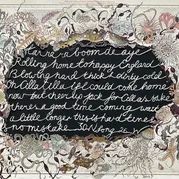 Tarra-ra-boom de aye
Rolling home to happy England
blowing hard thick & dirty cold
Oh Alla Illa if I could come home
now but cheer up jack for Callao's sake
there's a good time coming wait
a little longer this is hard times &
no mistake